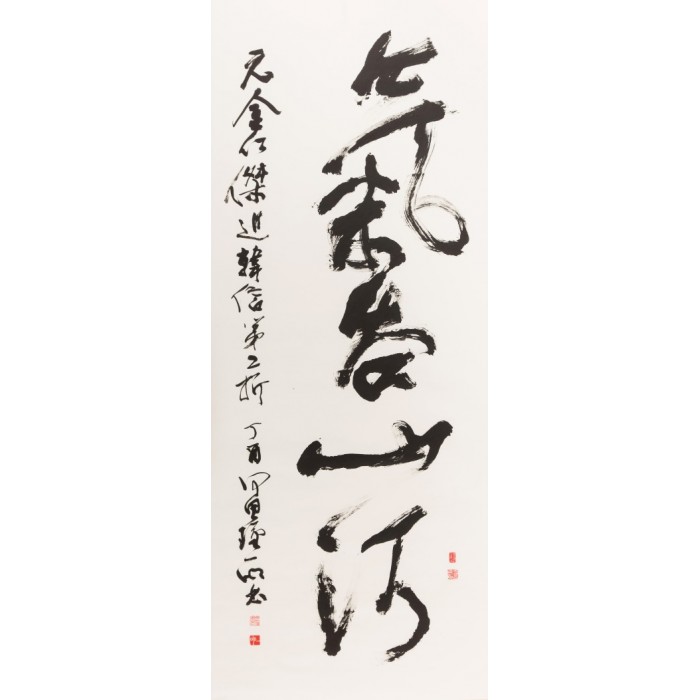 氣吞山河
元金仁傑追韓信第二折 丁酉